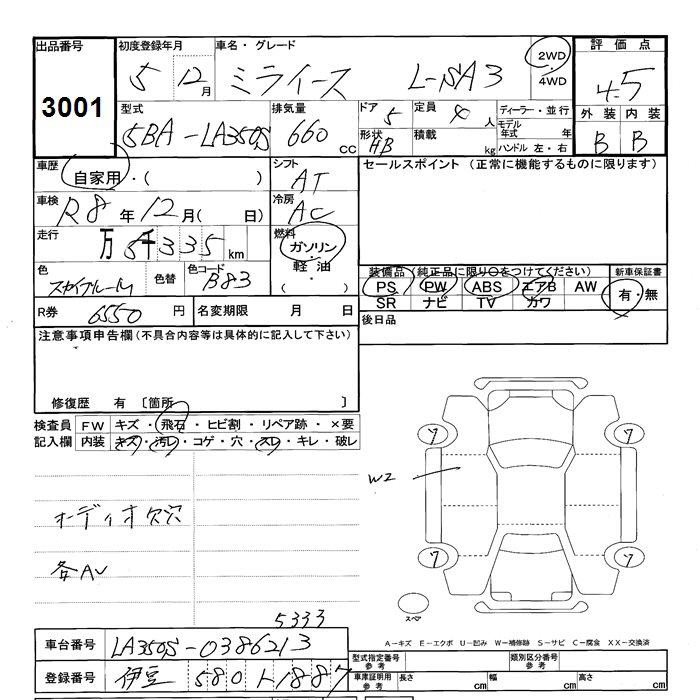 出品番号 初度登録年月 車名・グレード 評価点
3001 5 12月 ミライース L-SA3 2WD・4WD 4.5
型式 排気量 ドア 5 定員 4人 ディーラー・並行 外装 内装
5BA-LA350S 660cc 形状 HB 積載 kg モデル年式 年 ハンドル 左・右 B B
車歴 自家用・( ) シフト AT セールスポイント (正常に機能するものに限ります)
車検 R8年12月( 日) 冷房 AC
走行 万5千335km 燃料 ガソリン・軽油・( )
色 色替 色コード B83 装備品(純正品に限り○をつけてください) 新車保証書
PS PW ABS エアB AW 有・無
SR ナビ TV カワ
R券 6550円 名変期限 月 日 後日品
注意事項申告欄(不具合内容等は具体的に記入して下さい)
修復歴 有 〔箇所 〕
検査員 FW キズ・飛石・ヒビ割・リペア跡・×要
記入欄 内装 キズ・汚レ・コゲ・穴・スレ・キレ・破レ
7 7
W2
オーディオ欠穴
7 7
各AV
スペア
5333
A-キズ E-エクボ U-凹み W-補修跡 S-サビ C-腐食 XX-交換済
車台番号 LA350S-0386213 型式指定番号 参考 類別区分番号 参考
登録番号 伊豆 580 ト1887 車庫証明用 参考 長さ cm 幅 cm 高さ cm